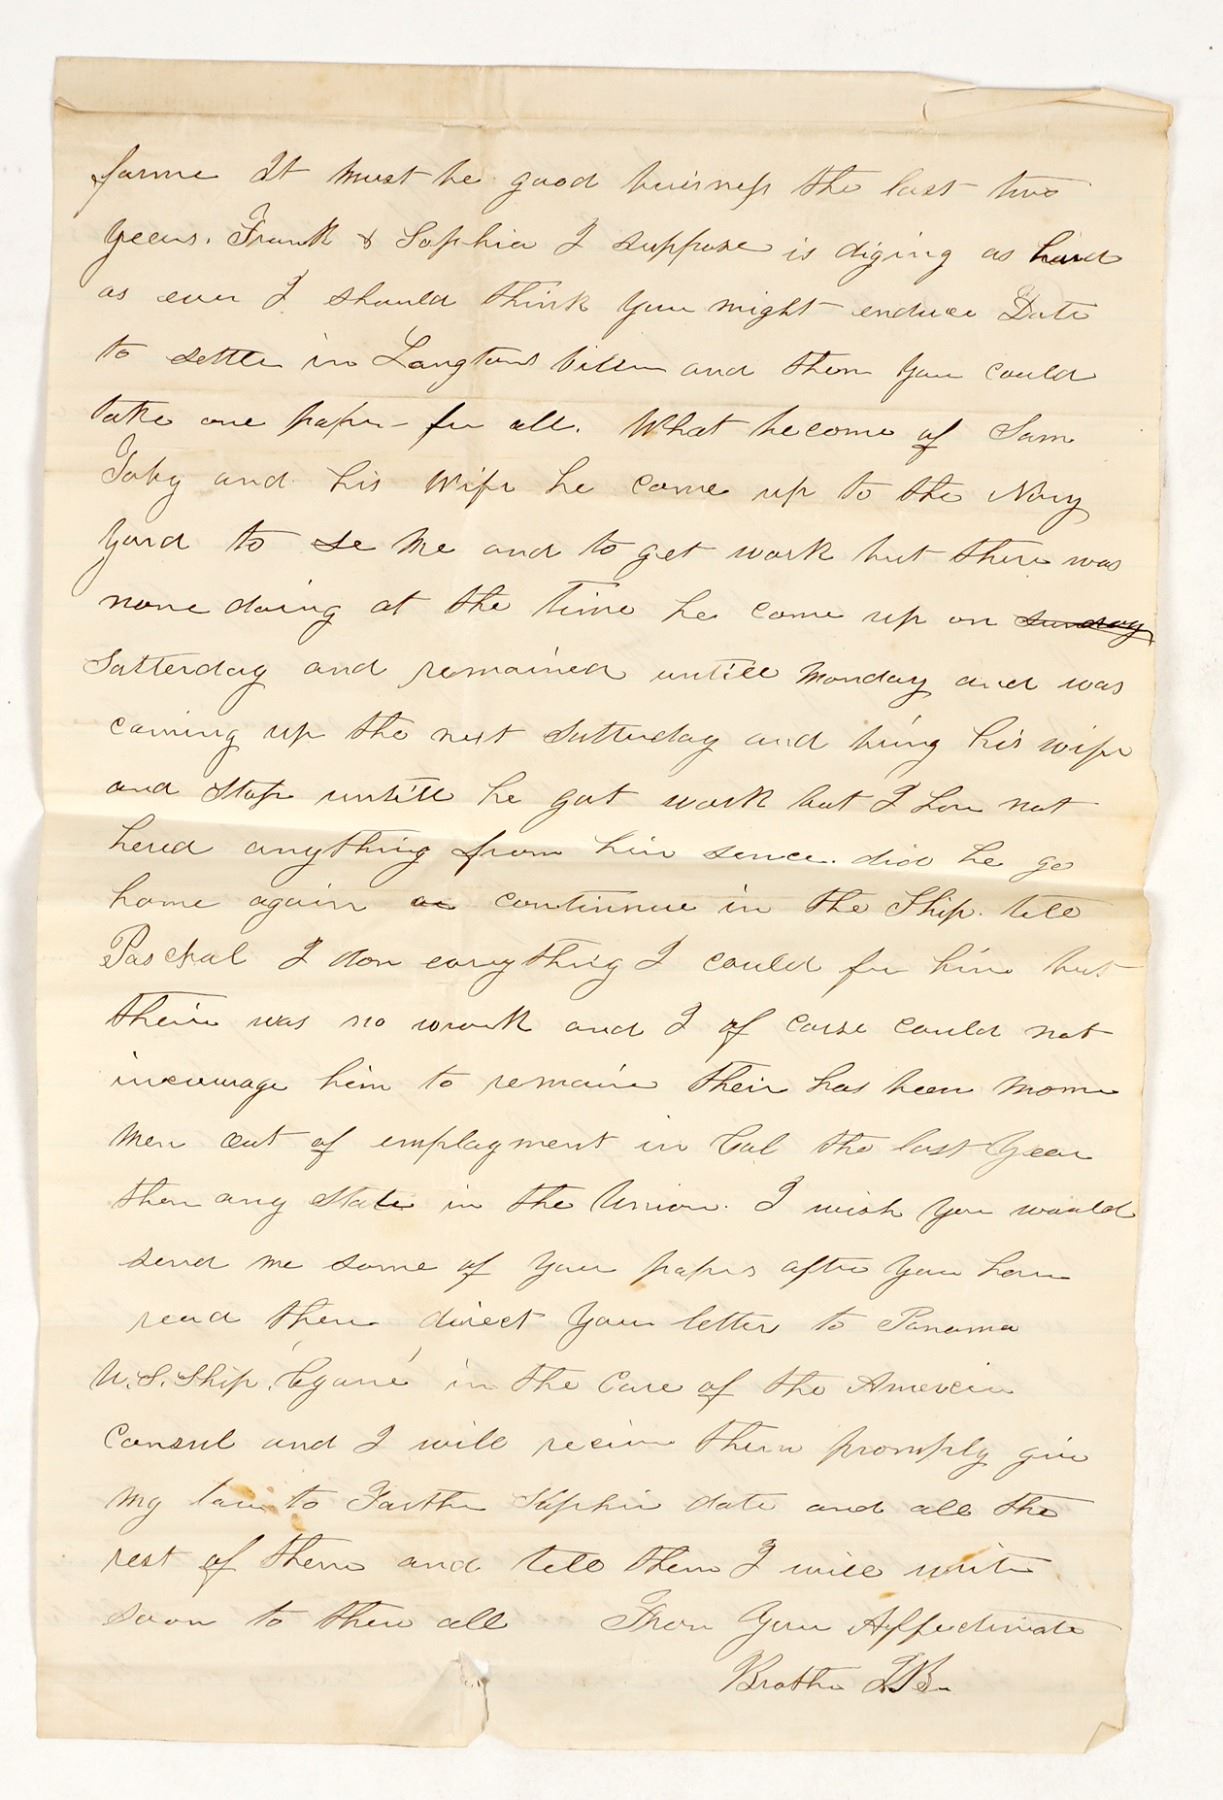 farme It must be good buisness the last two
years. Frank & Sophia I suppose is diging as hard
as ever I should think you might enduce Date
to settle in Langtons ville and then you could
take one paper for all. What become of Sam
Toby and his wife he come up to the Navy
Yard to se me and to get work but there was
none doing at the time he come up on ~~sunday~~
Satterday and remained untill monday and was
coming up the next Satterday and bring his wife
and stop untill he got work but I have not
hered anything from him sence. did he go
home again or continue in the Ship. tell
Paschal I don everything I could for him but
their was no work and I of corse could not
incourage him to remain their has been more
men out of employment in Cal the last year
then any State in the Union. I wish you would
send me some of your papers after you have
read them direct your letter to Panama
U.S. Ship. 'Cyane' in the care of the Americin
Consul and I will receive them promply give
my love to Farther Sophia date and all the
rest of them and tell them I will write
soon to them all From Your Affectinate
Brother